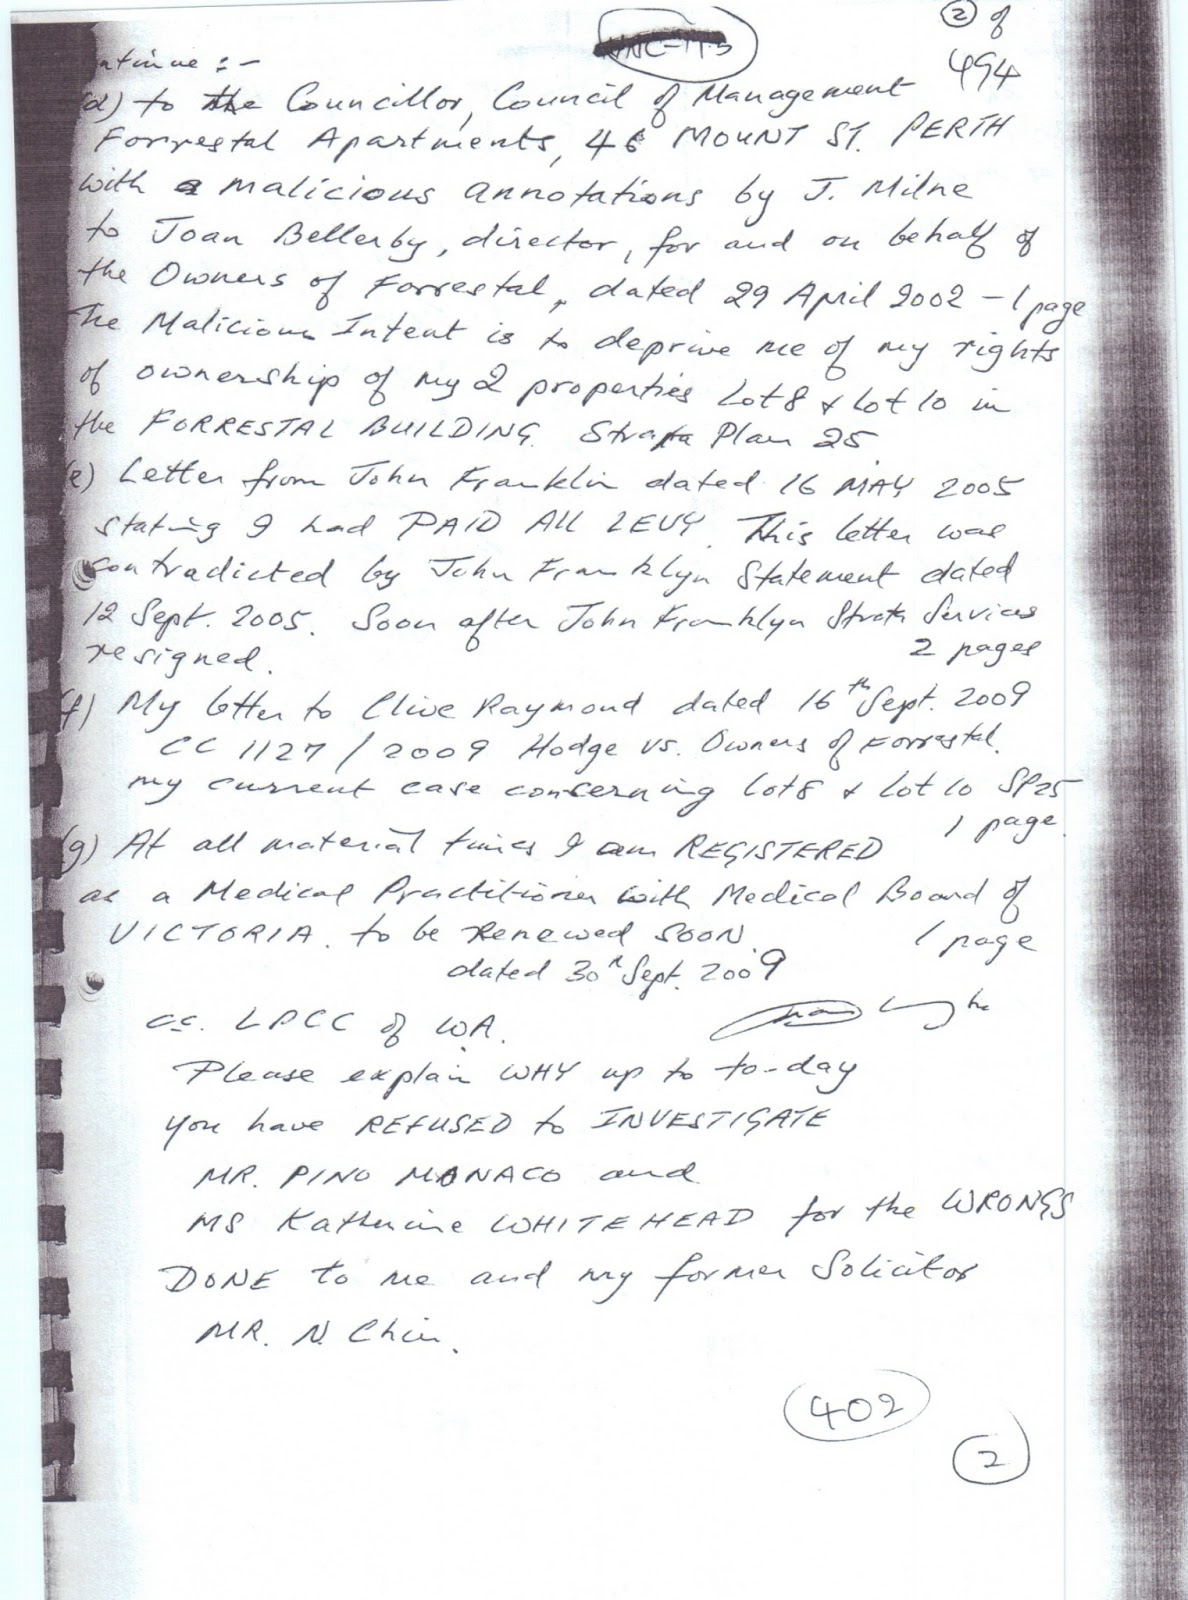 ② of
494
ntinue :-
(d) to the Councillor, Council of Management
Forrestal Apartments, 46 MOUNT ST. PERTH
with malicious annotations by J. Milne
to Joan Bellerby, director, for and on behalf of
the Owners of Forrestal, dated 29 April 2002 - 1 page
The Malicious Intent is to deprive me of my rights
of ownership of my 2 properties Lot 8 & Lot 10 in
the FORRESTAL BUILDING. Strata Plan 25.
(e) Letter from John Franklin dated 16 MAY 2005
stating I had PAID All LEVY. This letter was
contradicted by John Franklyn Statement dated
12 Sept. 2005. Soon after John Franklyn Strata Services
resigned. 2 pages
(f) My letter to Clive Raymond dated 16th Sept. 2009
CC 1127 / 2009 Hodge vs. Owners of Forrestal.
my current case concerning Lot 8 & Lot 10 SP25
1 page.
(g) At all material times I am REGISTERED
as a Medical Practitioner with Medical Board of
VICTORIA. to be Renewed SOON.
1 page
dated 30th Sept. 2009
c.c. LPCC of WA.
Please explain WHY up to to-day
you have REFUSED to INVESTIGATE
MR. PINO MONACO and
MS Katherine WHITEHEAD for the WRONGS
DONE to me and my former Solicitor
MR. N. Chin.
402
2